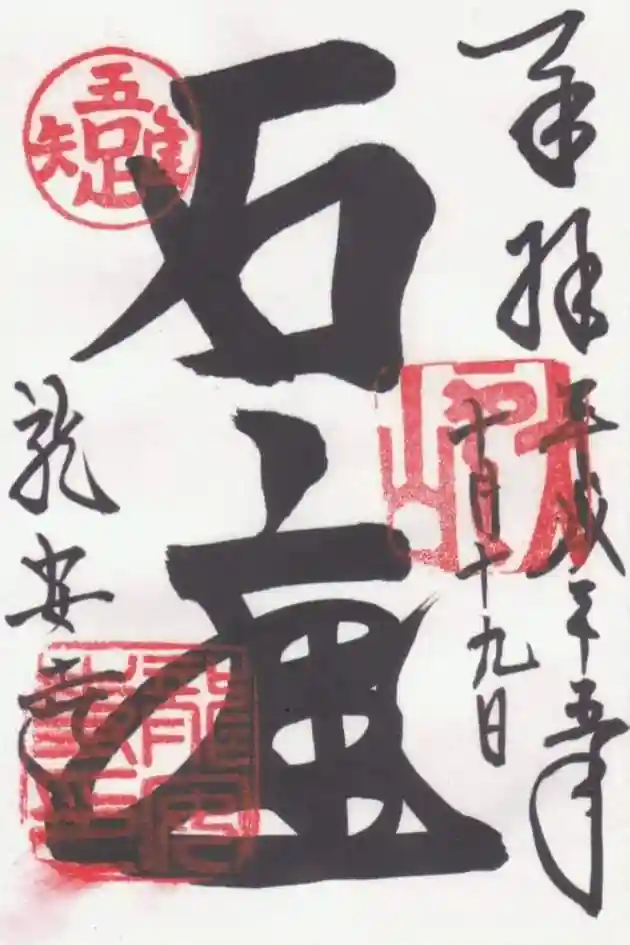 奉拝
平成二十五年
十月十九日
石庭
吾唯足知
龍安寺